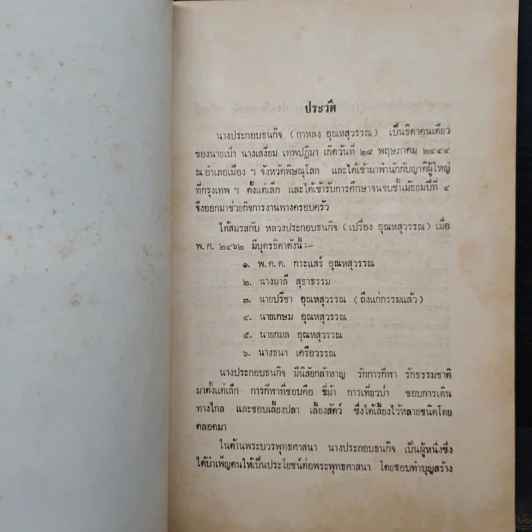 ประวัติ
นางประกอบธนกิจ (กาหลง อุณหสุวรรณ) เป็นธิดาคนเดียว
ของนายเปา นางเสงี่ยม เทพปฏิมา เกิดวันที่ ๒๘ พฤษภาคม ๒๔๔๔
ณ อำเภอเมือง ฯ จังหวัดพิษณุโลก และได้เข้ามาพำนักกับญาติผู้ใหญ่
ที่กรุงเทพ ฯ ตั้งแต่เล็ก และได้เข้ารับการศึกษาจนจบชั้นมัธยมปีที่ ๔
จึงออกมาช่วยกิจการงานทางครอบครัว
ได้สมรสกับ หลวงประกอบธนกิจ (เปรื่อง อุณหสุวรรณ) เมื่อ
พ. ศ. ๒๔๖๒ มีบุตรธิดาดังนี้ :-
๑. พ. ต. ต. กระแสร์ อุณหสุวรรณ
๒. นางมาลี สุธาธรรม
๓. นายปรีชา อุณหสุวรรณ (ถึงแก่กรรมแล้ว)
๔. นายเกษม อุณหสุวรรณ
๕. นายกมล อุณหสุวรรณ
๖. นางธนา เครือวรรณ
นางประกอบธนกิจ มีนิสัยกล้าหาญ รักการกีฬา รักธรรมชาติ
มาตั้งแต่เล็ก การกีฬาที่ชอบคือ ขี่ม้า การเที่ยวป่า ชอบการเดิน
ทางไกล และชอบเลี้ยงปลา เลี้ยงสัตว์ ซึ่งได้เลี้ยงไว้หลายชนิดโดย
ตลอดมา
ในด้านพระบวรพุทธศาสนา นางประกอบธนกิจ เป็นผู้หนึ่งซึ่ง
ได้บำเพ็ญตนให้เป็นประโยชน์ต่อพระพุทธศาสนา โดยชอบทำบุญสร้าง